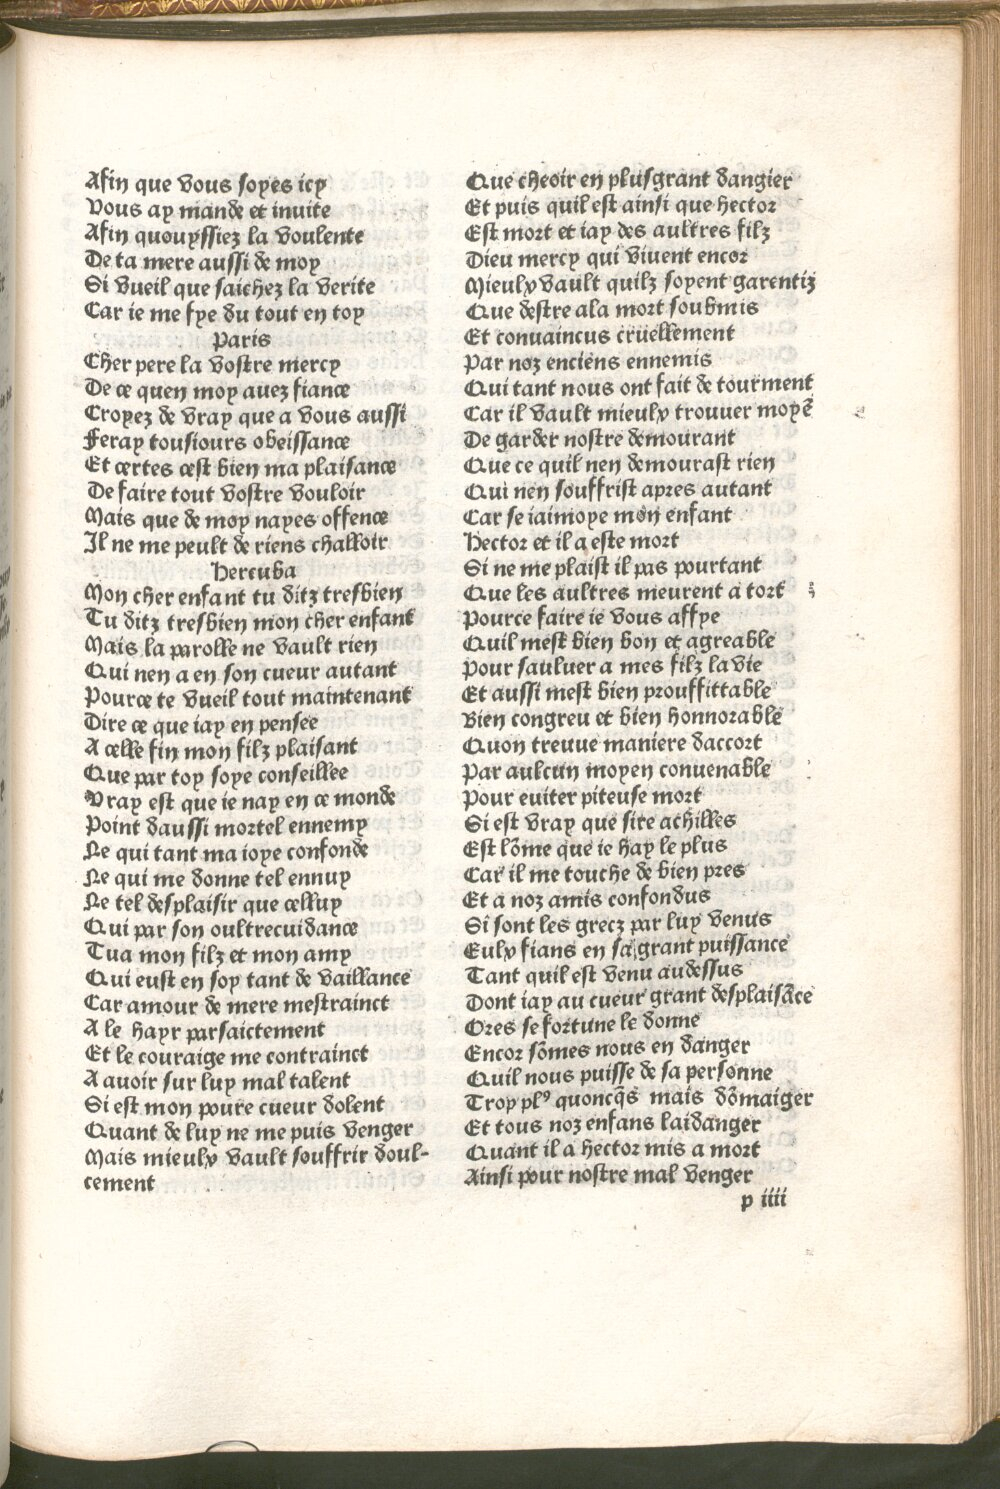 Afin que vous soyes icy
Vous ay mande et inuite
Afin quouyssiez la voulente
De ta mere aussi de moy
Si vueil que saichez la verite
Car ie me fye du tout en toy
Paris
Cher pere la vostre mercy
De ce quen moy auez fiance
Croyez de vray que a vous aussi
Feray tousiours obeissance
Et certes cest bien ma plaisance
De faire tout vostre vouloir
Mais que de moy nayes offence
Il ne me peult de riens challoir
Hercuba
Mon cher enfant tu ditz tresbien
Tu ditz tresbien mon cher enfant
Mais la parolle ne vault rien
Qui nen a en son cueur autant
Pource te vueil tout maintenant
Dire ce que iay en pensee
A celle fin mon filz plaisant
Que par toy soye conseillee
Vray est que ie nay en ce monde
Point daussi mortel ennemy
Ne qui tant ma ioye confonde
Ne qui me donne tel ennuy
Ne tel desplaisir que celluy
Qui par son oultrecuidance
Tua mon filz et mon amy
Qui eust en soy tant de vaillance
Car amour de mere mestrainct
A le hayr parsaictement
Et le couraige me contrainct
A auoir sur luy mal talent
Si est mon poure cueur dolent
Quant de luy ne me puis venger
Mais mieulx vault souffrir doul-
cement
Que cheoir en plusgrant dangier
Et puis quil est ainsi que hector
Est mort et iay des aultres filz
Dieu mercy qui viuent encor
Mieulx vault quilz soyent garentiz
Que destre ala mort soubmis
Et conuaincus cruellement
Par noz enciens ennemis
Qui tant nous ont fait de tourment
Car il vault mieulx trouuer moyẽ
De garder nostre demourant
Que ce quil nen demourast rien
Qui nen souffrist apres autant
Car se iaimoye mon enfant
Hector et il a este mort
Si ne me plaist il pas pourtant
Que les aultres meurent a tort
Pource faire ie vous affye
Quil mest bien bon et agreable
Pour sauluer a mes filz la vie
Et aussi mest bien prouffittable
Bien congreu et bien honnorable
Quon treuue maniere daccort
Par aulcun moyen conuenable
Pour euiter piteuse mort
Si est vray que sire achilles
Est lõme que ie hay le plus
Car il me touche de bien pres
Et a noz amis confondus
Si sont les grecz par luy venus
Eulx fians en sa grant puissance
Tant quil est venu audessus
Dont iay au cueur grant desplaisãce
Ores se fortune le donne
Encor sõmes nous en danger
Quil nous puisse de sa personne
Trop plꝰ quoncq̃s mais dõmaiger
Et tous noz enfans laidanger
Quant il a hector mis a mort
Ainsi pour nostre mal venger
p iiii